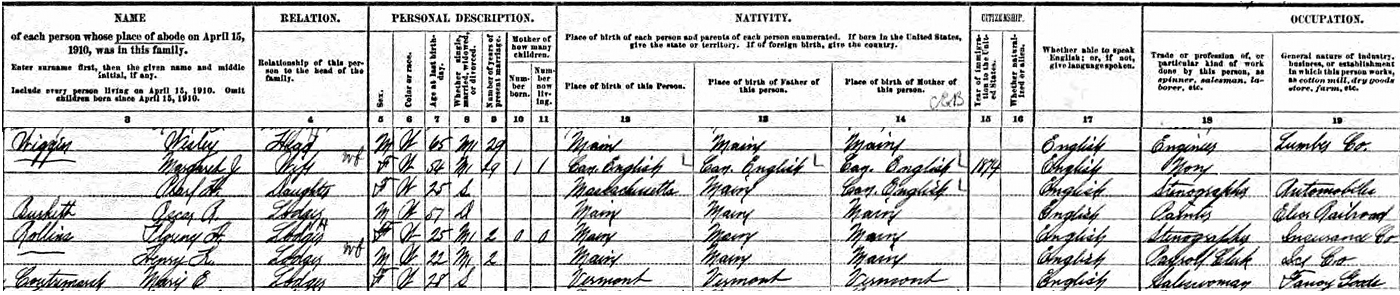 NAME RELATION. PERSONAL DESCRIPTION. NATIVITY. CITIZENSHIP. OCCUPATION.
of each person whose place of abode on April 15, 1910, was in this family.
Enter surname first, then the given name and middle initial, if any.
Include every person living on April 15, 1910. Omit children born since April 15, 1910.
Relationship of this person to the head of the family.
Sex.
Color or race.
Age at last birthday.
Whether single, married, widowed, or divorced.
Number of years of present marriage.
Mother of how many children.
Number born.
Number now living.
Place of birth of each person and parents of each person enumerated. If born in the United States, give the state or territory. If of foreign birth, give the country.
Place of birth of this Person.
Place of birth of Father of this person.
Place of birth of Mother of this person.
Year of immigration to the United States.
Whether naturalized or alien.
Whether able to speak English; or, if not, give language spoken.
Trade or profession of, or particular kind of work done by this person, as spinner, salesman, laborer, etc.
General nature of industry, business, or establishment in which this person works, as cotton mill, dry goods store, farm, etc.
3 4 5 6 7 8 9 10 11 12 13 14 15 16 17 18 19
Wiggin Wesley Head M W 65 M1 29 Maine Maine Maine English Engineer Lumber Co.
Margaret J. Wife F W 54 M1 29 1 1 Can. English Can. English Can. English 1874 English None
Pearl H. Daughter F W 25 S Massachusetts Maine Can. English English Stenographer Automobiles
Burkett Oscar R. Lodger M W 57 D Maine Maine Maine English Painter Elec Railroad
Rollins A. Lodger F W 25 M1 2 0 0 Maine Maine Maine English Stenographer Insurance Co
Henry L. Lodger M W 22 M1 2 Maine Maine Maine English Payroll Clerk Ice Co
Mary E. Lodger F W 28 S Vermont Vermont Vermont English Saleswoman Fancy Goods